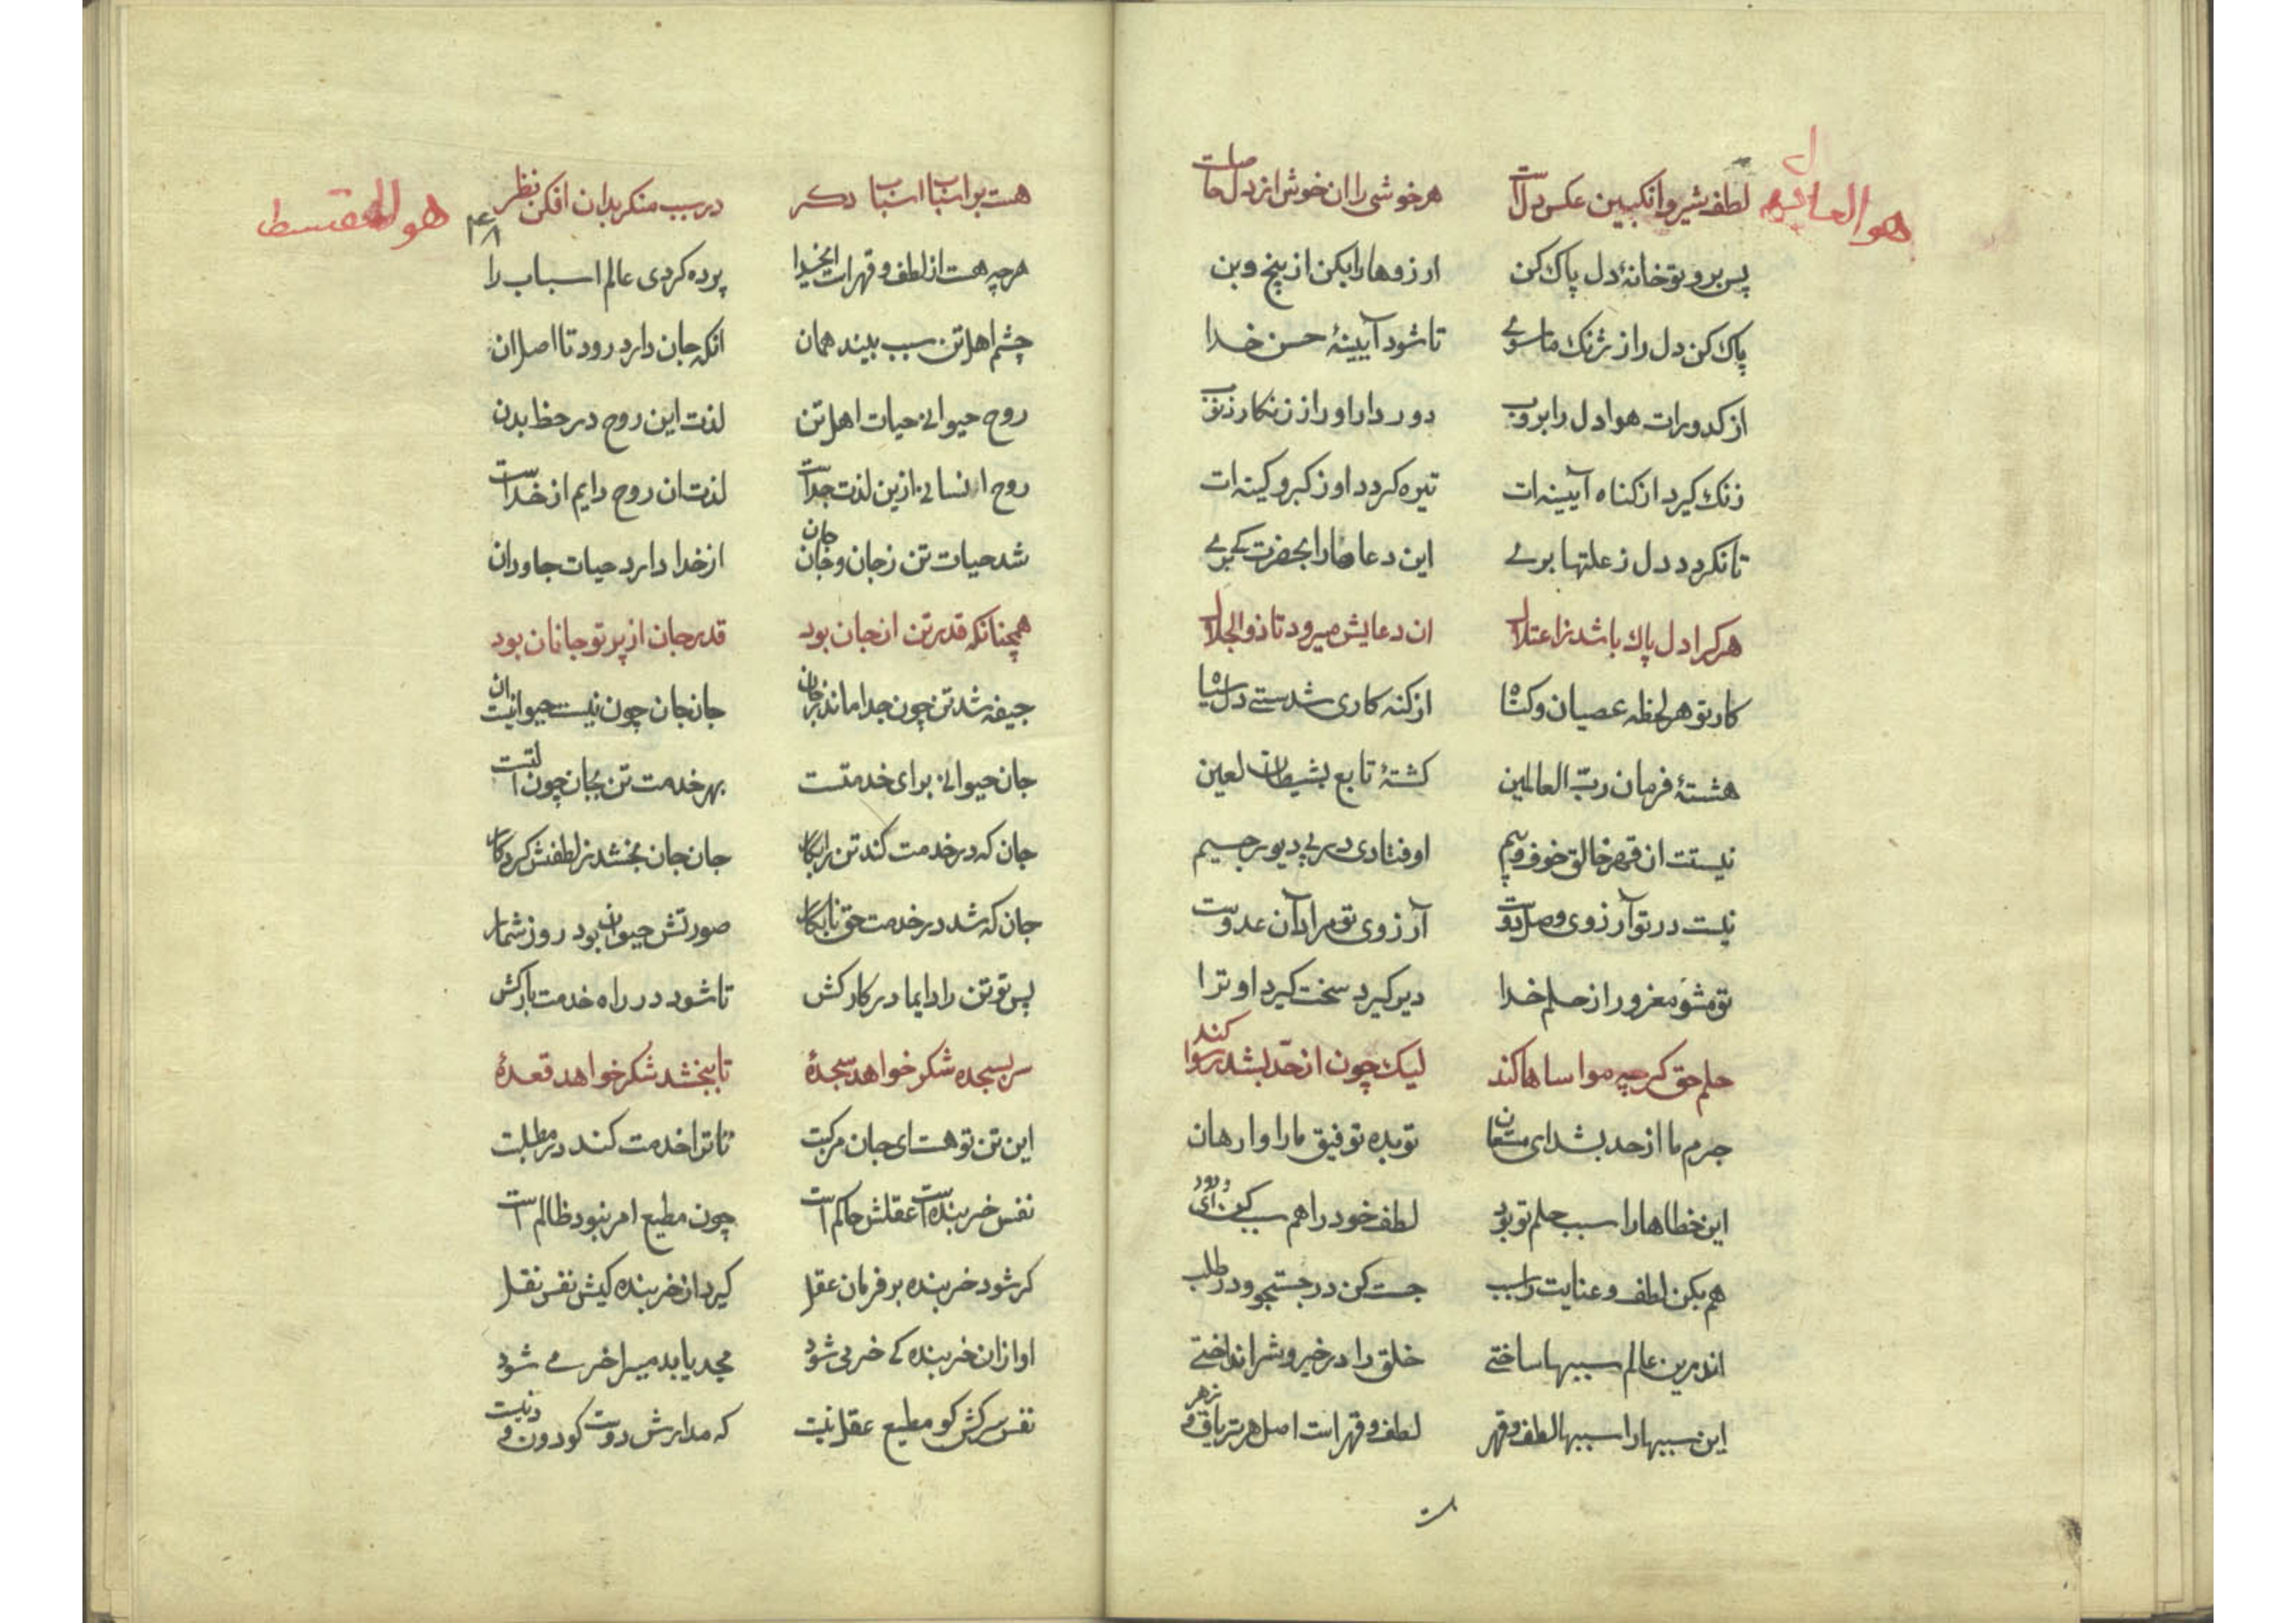 لطف شیر و انکبین عکس دلست هر خوشی را ان خوش از دل حاصلست
پس برو تو خانهٔ دل پاک کن ارزوها را بکن از بیخ و بن
پاک کن دل را ز ژنک ماسوی تا شود آیینهٔ حسن خدا
از کدورات هوا دل را بروب دور دار او را ز زنکار ذنوب
زنک کیرد از کناه آیینه‌ات تیره کردد او ز کبر و کینه‌ات
تا نکردد دل ز علتها بری این دعاها را بحضرت کی بری
هر کرا دل پاک باشد ز اعتلال ان دعایش میرود تا ذو الجلال
کار تو هر لحظه عصیان و کناه از کنه کاری شدستی دل سیاه
هشتهٔ فرمان ربّ العالمین کشتهٔ تابع بشیطان لعین
نیستت از قهر خالق خوف و بیم اوفتادی در پی دیو رجیم
نیست در تو آرزوی وصل دوست آرزوی تو مراد آن عدوست
تو مشو مغرور از حلم خدا دیر کیرد سخت کیرد او ترا
حلم حق کرچه مواساها کند لیک چون از حدّ بشد رسوا کند
جرم ما از حد بشد ای مستعان تو بده توفیق ما را وارهان
این خطاها را سبب حلم تو بود لطف خود را هم سبب کن ای ودود
هم بکن لطف و عنایت را سبب جست کن در جستجو و در طلب
اندرین عالم سببها ساختی خلق را در خیر و شر انداختی
این سببها را سببها لطف و قهر لطف و قهرات اصل هر تریاق و زهر
هو المقسط
۴۸
هست بر اسباب اسباب دکر در سبب منکر بدان افکن نظر
هرچه هست از لطف و قهرات ایخدا پرده کردی عالم اسباب را
چشم اهل تن سبب بیند همان انکه جان دارد رود تا اصل ان
روح حیوانی حیات اهل تن لذت این روح در حظ بدن
روح انسانی ازین لذت جداست لذت ان روح دایم از خداست
شد حیات تن ز جان و جان جان از خدا دارد حیات جاودان
همچنانکه قدر تن از جان بود قدر جان از پرتو جانان بود
جیفه شد تن چون جدا ماند ز جان جان جان چون نیست حیوانیست ان
جان حیوانی برای خدمتست بهر خدمت تن بجان چون التست
جان که در خدمت کند تن را بکار جان جان بخشد ز لطفش کردکار
جان که شد در خدمت حق نابکار صورتش حیوان بود روز شمار
پس تو تن را دایما در کار کش تا شود در راه خدمت بارکش
سر بسجده شکر خواهد سجدهٔ تا ببخشد شکر خواهد قعدهٔ
این تن تو هست ای جان مرکبت تا ترا خدمت کند در مطلبت
نفس خربنده‌ست عقلش حاکم است چون مطیع امر نبود ظالم است
کر شود خربنده بر فرمان عقل کیرد از خربنده کیش نفس نقل
او ازان خربنده کی خر می شود مجد یابد میر اخر می شود
نفس سرکش کو مطیع عقل نیست که مدارش دوست کو دون و دنیست